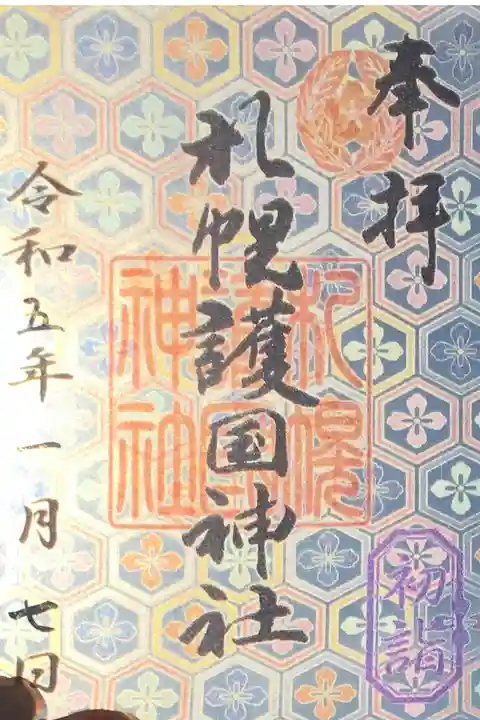 奉拝
札幌護国神社
札幌護国神社
初詣
令和五年一月七日